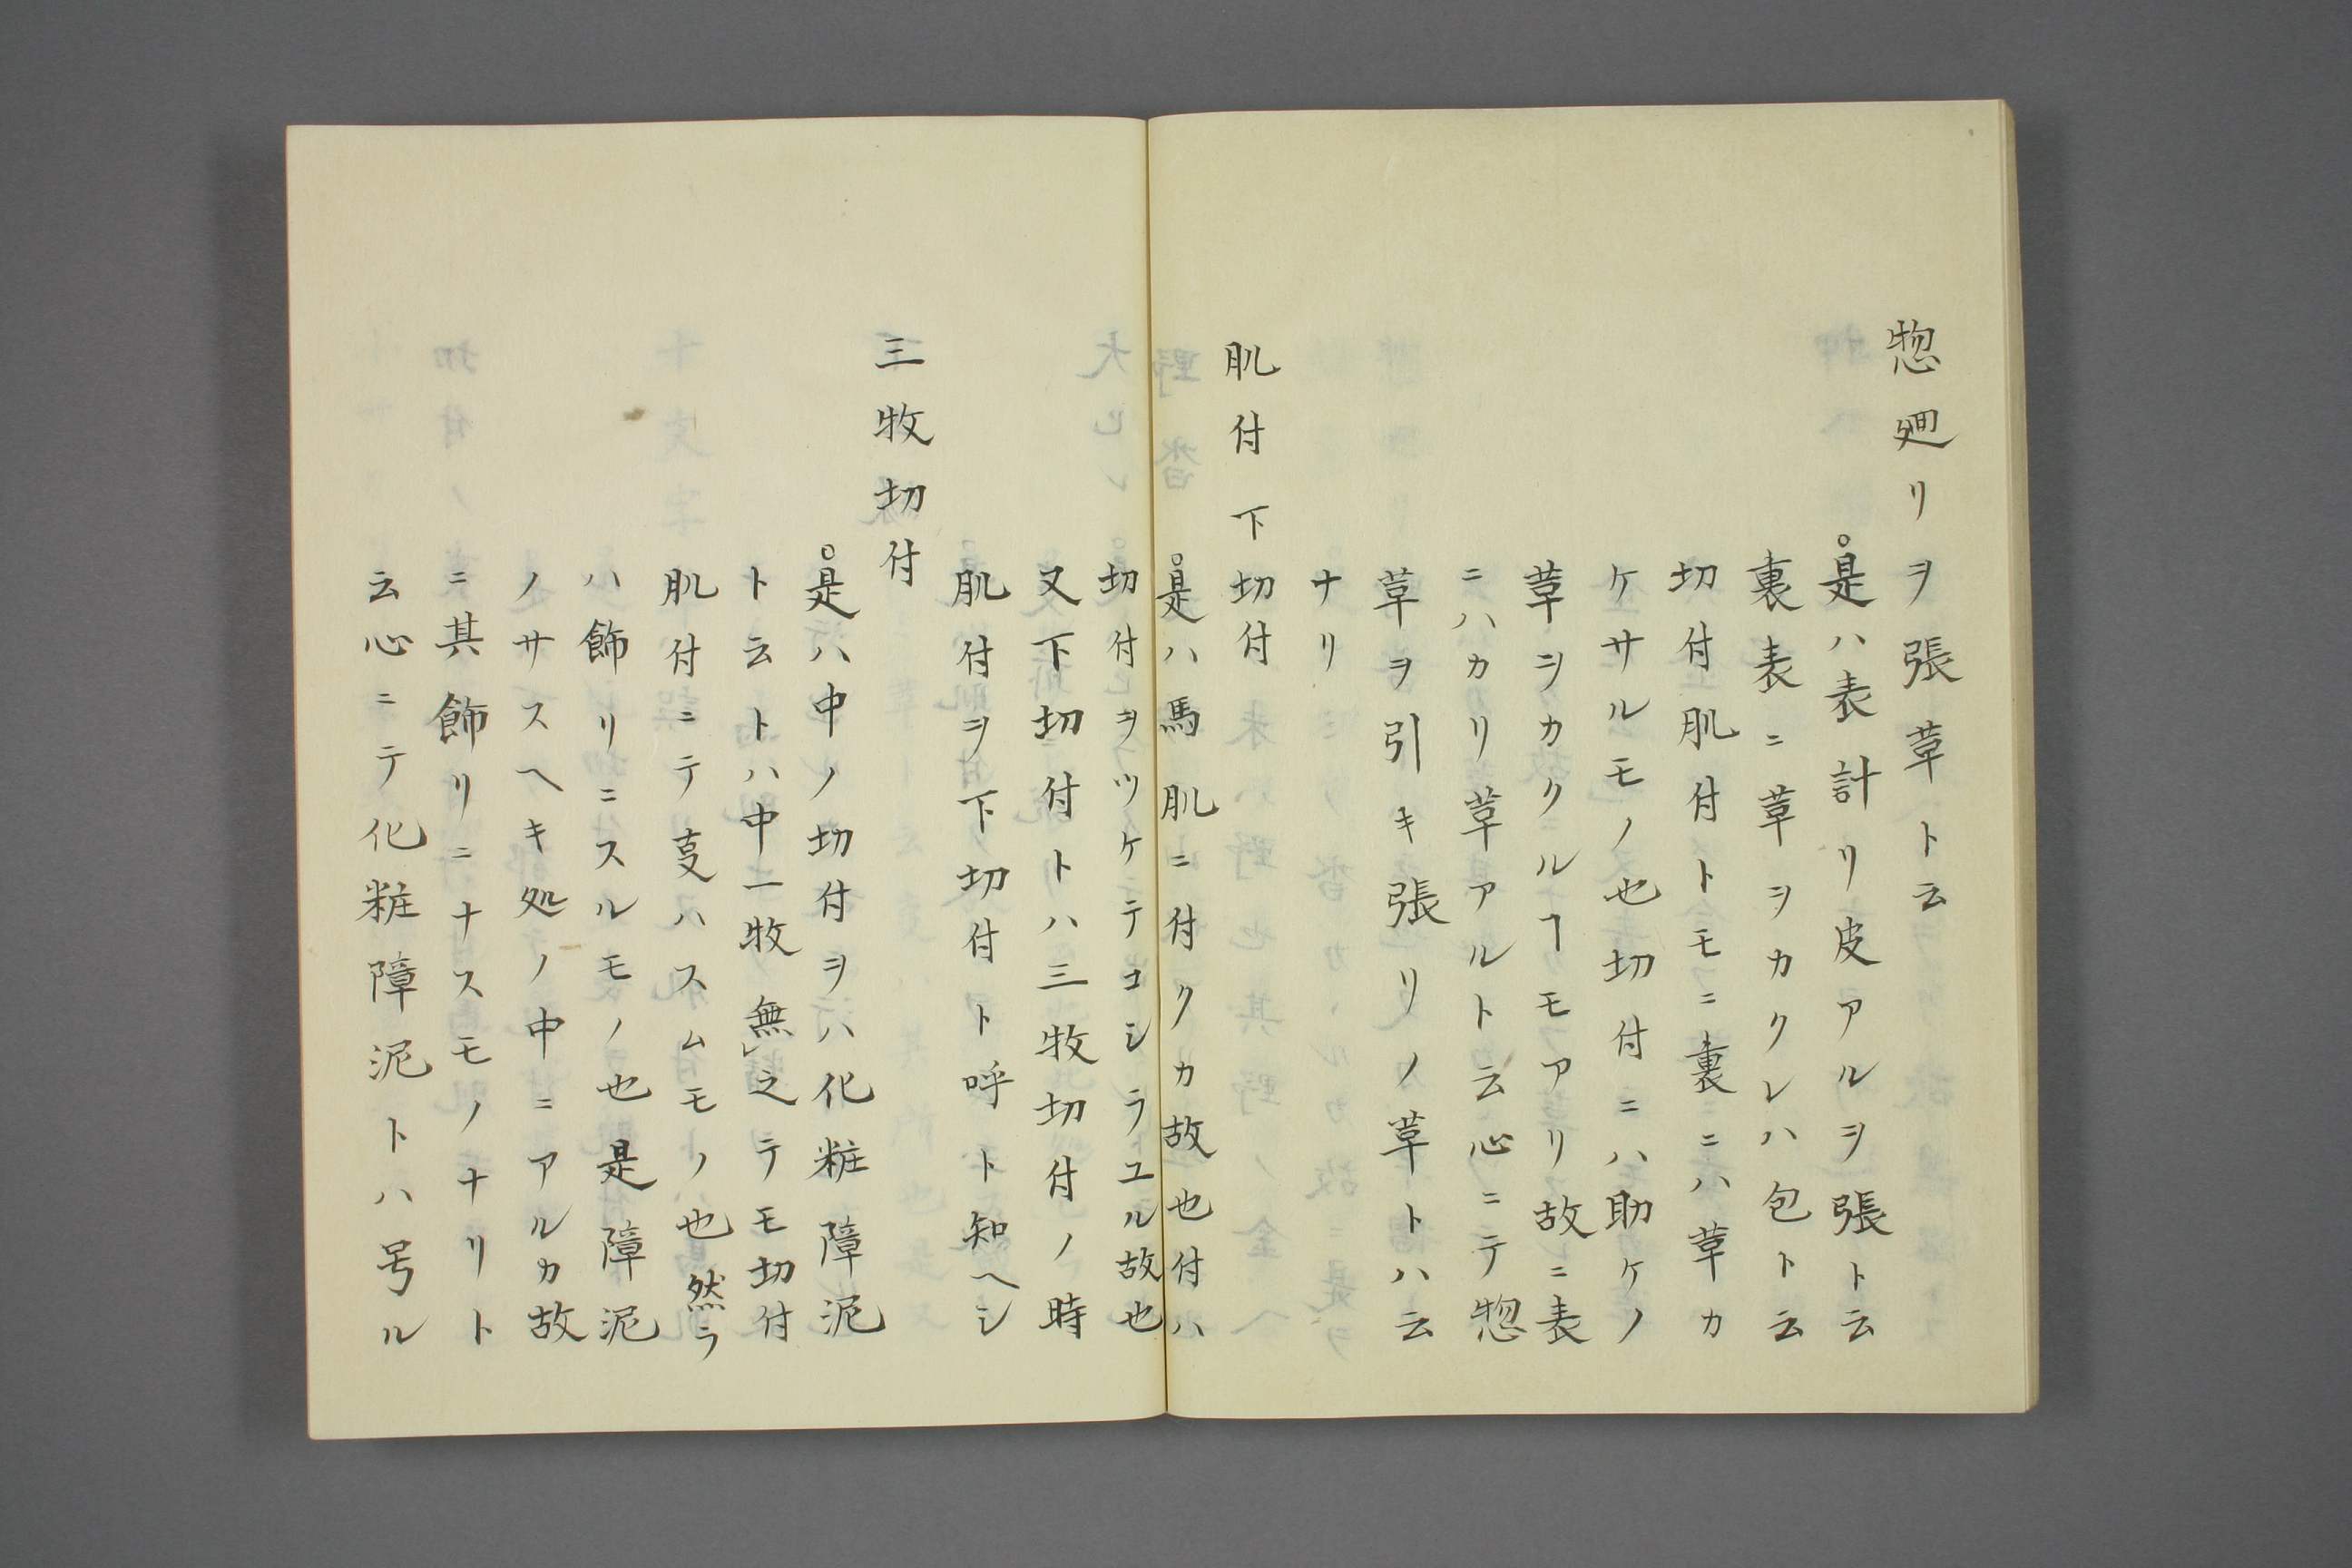 惣廻リヲ張革ト云
○是ハ表計リ皮アルヲ張ト云
裏表ニ革ヲカクレハ包ト云
切付肌付トモニ裏ニハ革カ
ケサルモノ也切付ニハ助ケノ
革ヲカクルヿモアリ故ニ表
ニハカリ革アルト云心ニテ惣
革ヲ引キ張リノ革トハ云
ナリ
肌付下切付
○是ハ馬肌ニ付クカ故也付ハ
切付ヲツケテコシラユル故也
又下切付トハ三牧切付ノ時
肌付ヲ下切付ト呼ト知ヘシ
三牧切付
○是ハ中ノ切付ヲハ化粧障泥
ト云トハ中一牧無㆑之テモ切付
肌付ニテ叓ハスムモノ也然ラ
ハ飾リニスルモノ也是障泥
ノサスヘキ処ノ中ニアルカ故
ニ其飾リニナスモノナリト
云心ニテ化粧障泥トハ号ル